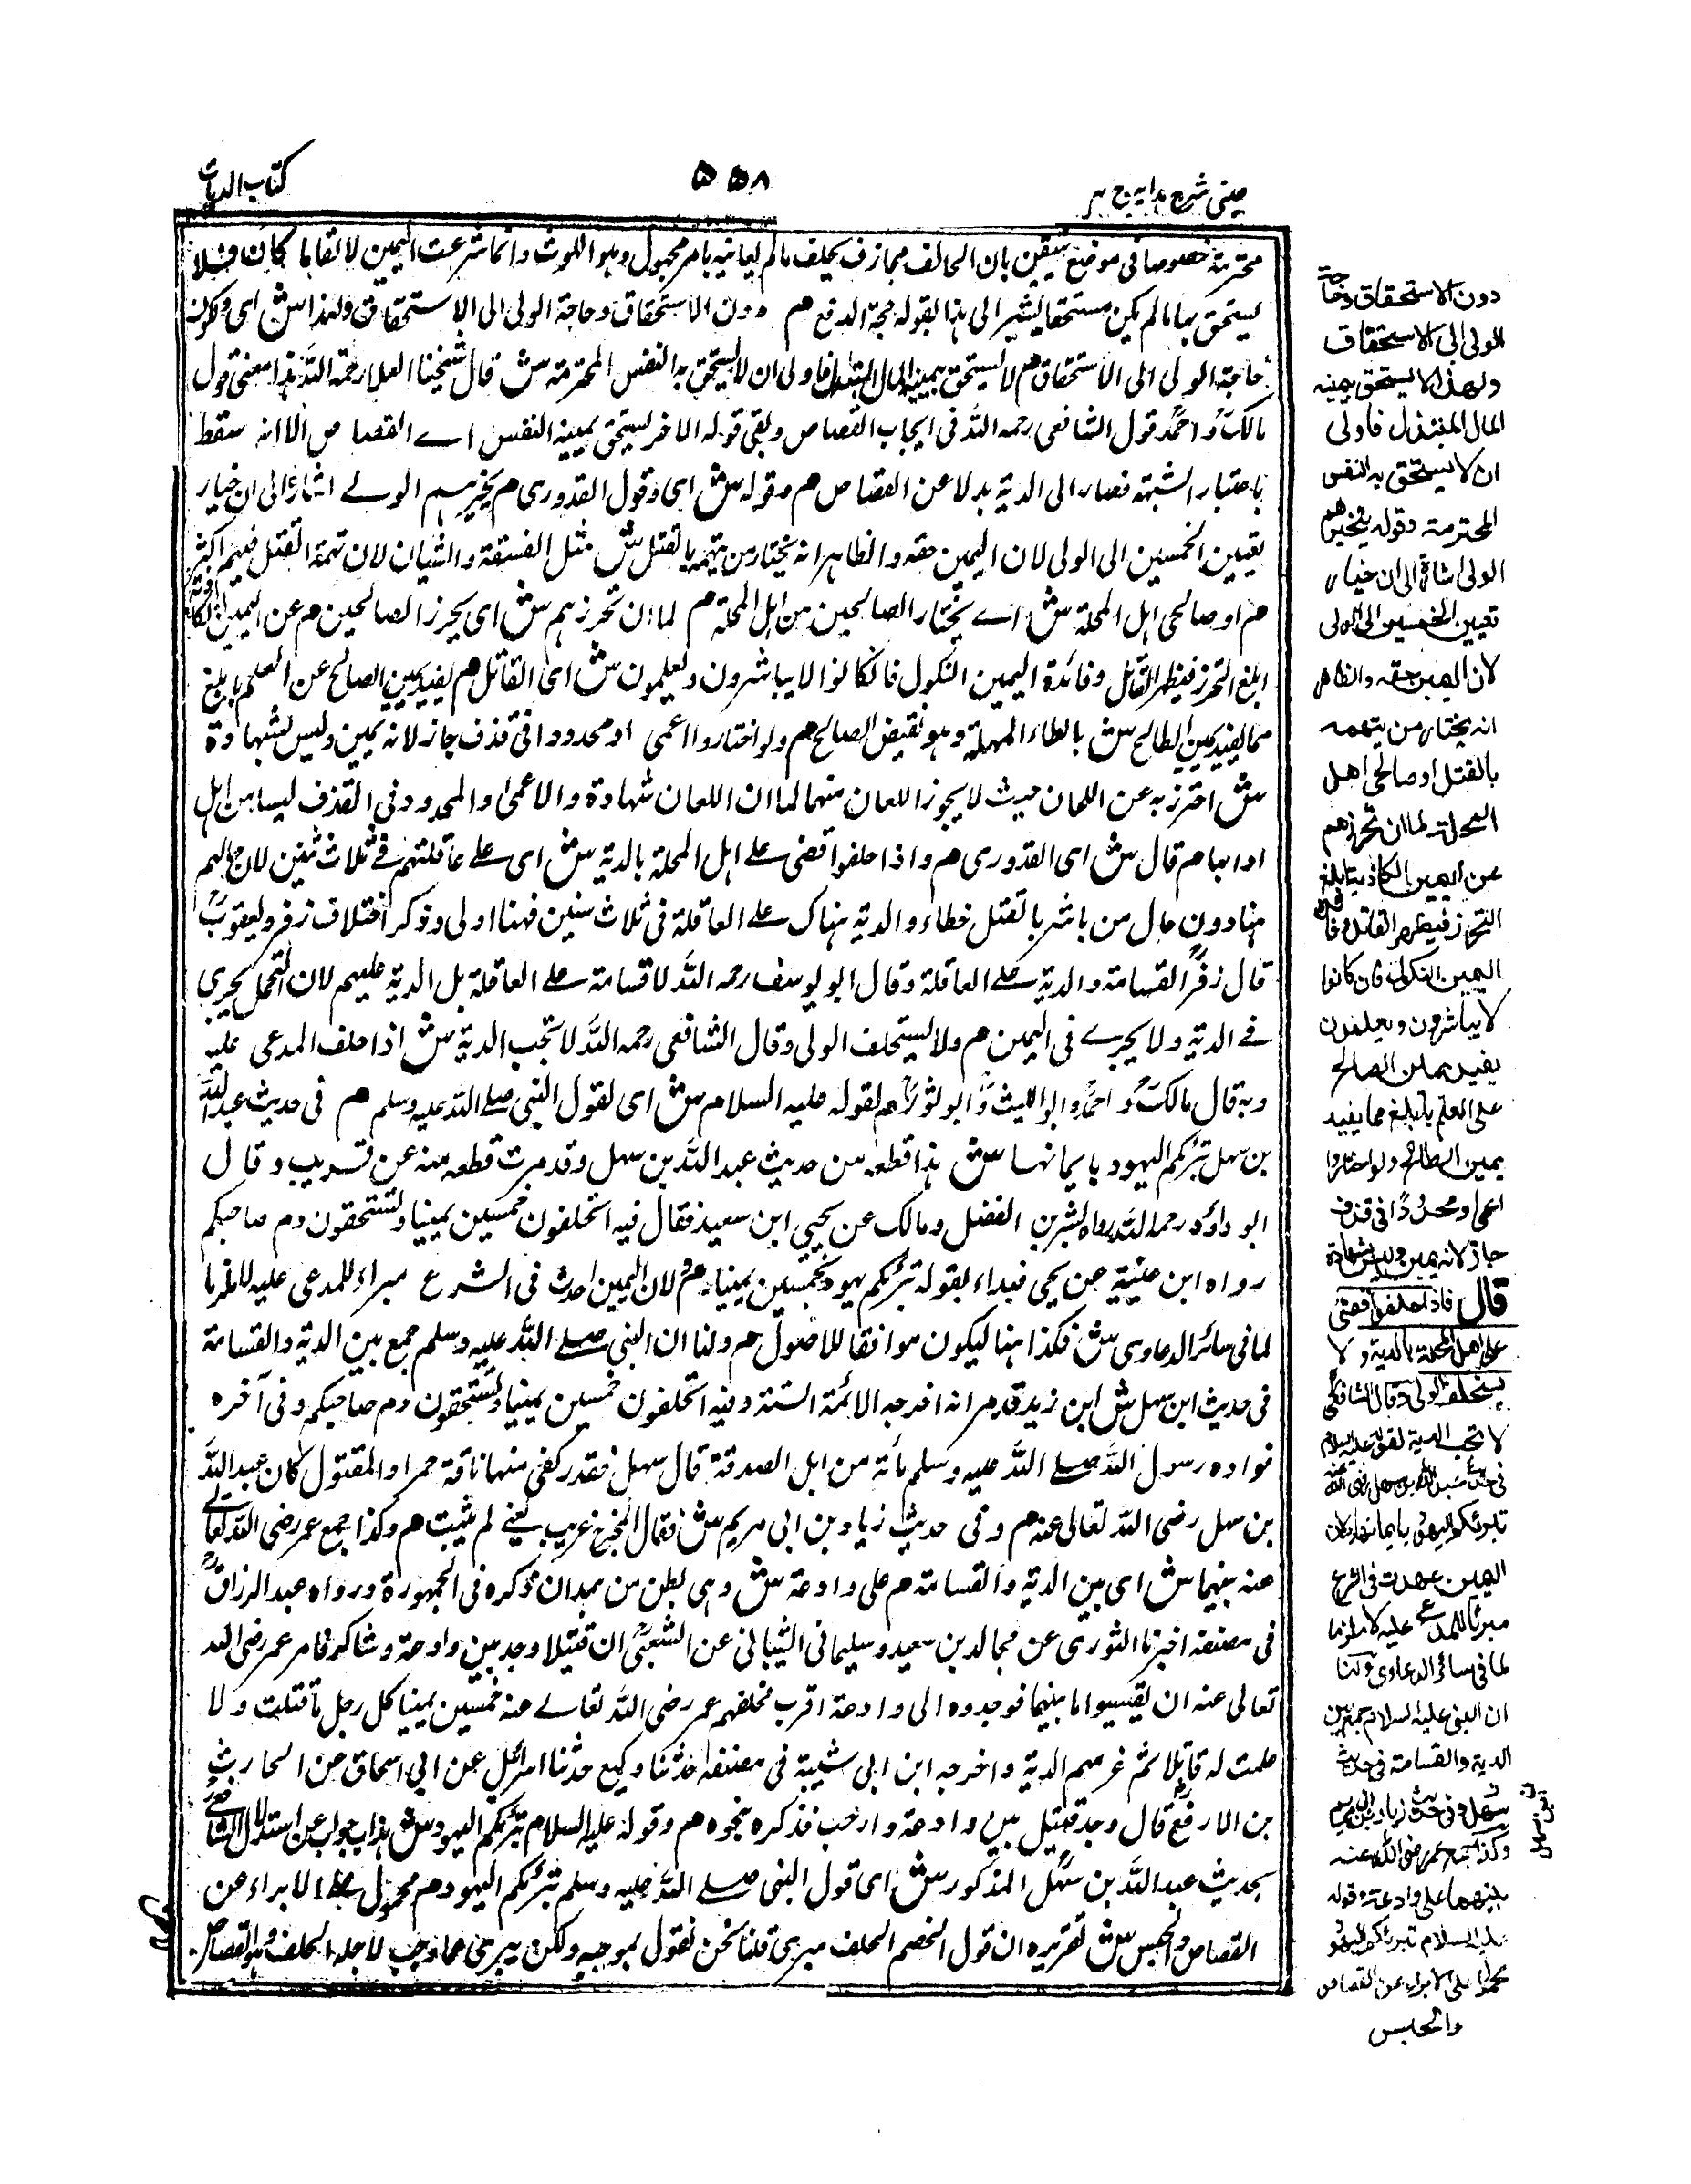 عینی شرح ہدایہ ج ۴
۵۵۸
کتاب الدیات
محترمة خصوصا فی موضع یتیقن بان الحالف مجازف یحلف مالم یعاینه بامر محبول وہو اللوث وانما شرعت الیمین لابقا ما کان فلا
یستحق بہا مالم یکن مستحقا یشیر الی ہذا بقوله حجة الدفع هم دون الاستحقاق وحاجة الولی الی الاستحقاق ولہذا ش ای ولکون
حاجة الولی الی الاستحقاق هم لا یستحق بیمینه المال المبتذل فاولی ان لا یستحق به النفس المحترمة ش قال شیخنا العلا رحمة اللہ ہذا معنی قول
مالک و احمد قول الشافعی رحمه اللہ فی ایجاب القصاص وبقی قوله الاخر یستحق بیمینه النفس اے القصاص الا انه سقط
باعتبار الشبہة فصار الی الدیة بدلا عن القصاص هم وقوله ش ای وقول القدوری م یتخیرہم الولے اشارة الی ان خیار
تعیین الخمسین الی الولی لان الیمین حقه والظاہر انه یختار من یتہمه بالقتل ش مثل الفسقة والشبان لان تہمة القتل فیہم اکثر
هم او صالحی اہل المحلة ش اے یختار الصالحین من اہل المحلة هم لما ان تحرزہم ش ای تحرز الصالحین م عن الیمین الکاذبة
ابلغ التحرز فیظہر القاتل وفائدة الیمین النکول فان کانوا لا یباشرون ویعلمون ش ای القاتل هم یفید یمین الصالح عن العلم بابلغ
مما یفید یمین الطالح ش بالطاء المہملة وہو نقیض الصالح هم ولو اختاروا اعمی او محدودا فی قذف جاز لانه یمین ولیس بشہادة
ش احترز به عن اللعان حیث لا یجوز اللعان منہما لما ان اللعان شہادة والاعمی والمحدود فی القذف لیسا من اہل
ادائہا هم قال ش ای القدوری هم واذا حلفوا قضی علے اہل المحلة بالدیة ش ای علے عاقلتہم فے ثلاث سنین لان حالہم
ہنا دون حال من باشر بالقتل خطاء والدیة ہناک علے العاقلة فی ثلاث سنین فہنا اولی وذکر اختلاف زفر ویعقوب
قال زفر القسامة والدیة علے العاقلة وقال ابو یوسف رحمه اللہ لا قسامة علے العاقلة بل الدیة علیہم لان التحمل یجری
فے الدیة ولا یجرے فی الیمین هم ولا یستحلف الولی وقال الشافعی رحمه اللہ لا تجب الدیة ش اذا حلف المدعی علیه
وبه قال مالک و احمد و ابو اللیث و ابو ثور هم لقوله علیه السلام ش ای لقول النبی صلے اللہ علیه وسلم هم فی حدیث عبد اللہ
بن سہل تبرئکم الیہود بایمانہا ش ہذا قطعه من حدیث عبد اللہ بن سہل وقد مرت قطعه منه عن قریب وقال
ابو داؤد رحمه اللہ رواہ بشر بن الفضل ومالک عن یحیی ابن سعید فقال فیه اتحلفون خمسین یمینا وتستحقون دم صاحبکم
رواہ ابن عیینة عن یحی فبداء بقوله تبرئکم یہود بخمسین یمینا هم ولان الیمین عہدت فی الشرع مبراء للمدعی علیه لا ملزما
لما فی سائر الدعاوی ش فکذا ہنا لیکون موافقا للاصول هم ولنا ان النبی صلے اللہ علیه وسلم جمع بین الدیة والقسامة
فی حدیث ابن سہل ش ابن زید قد مر انه اخرجه الائمة الستة وفیه اتحلفون خمسین یمینا وتستحقون دم صاحبکم وفی آخرہ
فوادہ رسول اللہ صلے اللہ علیه وسلم مأتة من ابل الصدقة قال سہل فقد رکضی منہا ناقة حمراء والمقتول کان عبد اللہ
بن سہل رضی اللہ تعالی عنه هم وفی حدیث زیاد بن ابی مریم ش فقال المخرج غریب یعنے لم یثبت هم وکذا جمع عمر رضی اللہ تعالے
عنه بینہما ش ای بین الدیة والقسامة هم علی وادعة ش وہی بطن من ہمدان ذکرہ فی الجمہورة ورواہ عبد الرزاق
فی مصنفه اخبرنا الثوری عن مجالد بن سعید وسلیمانی الشیبانی عن الشعبی ان قتیلا وجد بین وادعة وشاکر فامر عمر رضی اللہ
تعالی عنه ان یقیسوا ما بینہما فوجدوہ الی وادعة اقرب فحلفہم عمر رضی اللہ تعالے عنه خمسین یمینا کل رجل ما قتلت ولا
علمت له قاتلا ثم غرمہم الدیة واخرجه ابن ابی شیبة فی مصنفه حدثنا وکیع حدثنا اسرائیل عن ابی اسحاق عن الحارث
بن الازمع قال وجد قتیل بین وادعة وارحب فذکرہ بنحوہ هم وقوله علیه السلام تبرئکم الیہود ش ہذا جواب عن استدلال الشافعی
بحدیث عبد اللہ بن سہل المذکور ش ای قول النبی صلے اللہ علیه وسلم تبرئکم الیہود هم محمول علی الابراء عن
القصاص والحبس ش تقریرہ ان قول الخصم الحلف مبری قلنا نحن نقول بموجبه ولکن یبرئ عما وجب لاجله الحلف وہو القصاص
دون الاستحقاق وحاجة
الولی الی الاستحقاق
ولهذا لا یستحق بیمینه
المال المبتذل فاولی
ان لا یستحق به النفس
المحترمة وقوله یتخیرهم
الولی اشارة الی ان خیار
تعیین الخمسین الی الولی
لان الیمین حقه والظاهر
انه یختار من یتهمه
بالقتل او صالحی اهل
المحلة لما ان تحرزهم
عن الیمین الکاذبة ابلغ
التحرز فیظهر القاتل وفائدة
الیمین النکول فان کانوا
لا یباشرون ویعلمون
یفید یمین الصالح
علی العلم بابلغ مما یفید
یمین الطالح ولو اختاروا
اعمی او محدودًا فی قذف
جاز لانه یمین ولیس بشهادة
قال فاذا حلفوا قضی
علی اهل المحلة بالدیة ولا
یستحلف الولی وقال الشافعی
لا تجب الدیة لقوله علیه السلام
فی حدیث عبد الله بن سهل رضی الله عنه
تبرئکم الیهود بایمانها ولان
الیمین عهدت فی الشرع
مبرئا للمدعے علیه لا ملزما
لما فی سائر الدعاوی ولنا
ان النبی علیه السلام جمع بین
الدیة والقسامة فی حدیث
سهل وفی حدیث زیاد بن ابی مریم
وکذا جمع عمر رضی الله عنه
بینهما علی وادعة وقوله
علیه السلام تبرئکم الیهود
محمول علی الابراء عن القصاص
والحبس